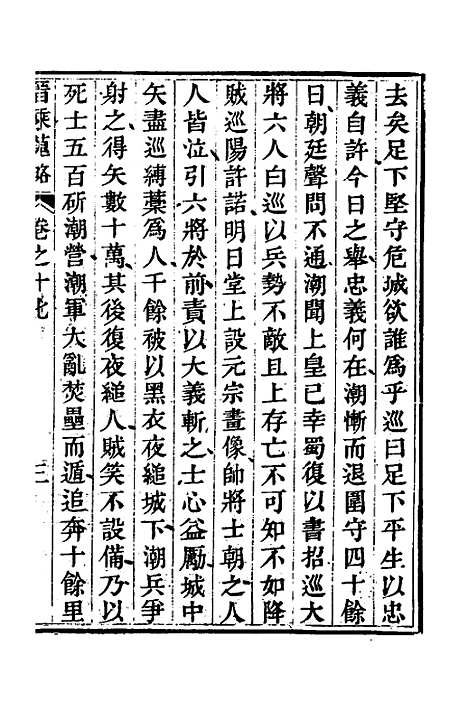 去矣足下堅守危城欲誰爲乎巡曰足下平生以忠
義自許今日之舉忠義何在潮慚而退圍守四十餘
日朝廷聲問不通潮聞上皇已幸蜀復以書招巡大
將六人白巡以兵勢不敵且上存亡不可知不如降
賊巡陽許諾明日堂上設元宗畫像帥將士朝之人
人皆泣引六將於前責以大義斬之士心益勵城中
矢盡巡縛藁爲人千餘被以黑衣夜縋城下潮兵爭
射之得矢數十萬其後復夜縋人賊笑不設備乃以
死士五百斫潮營潮軍大亂焚壘而遁追奔十餘里
晉乘蒐略 卷之十 三